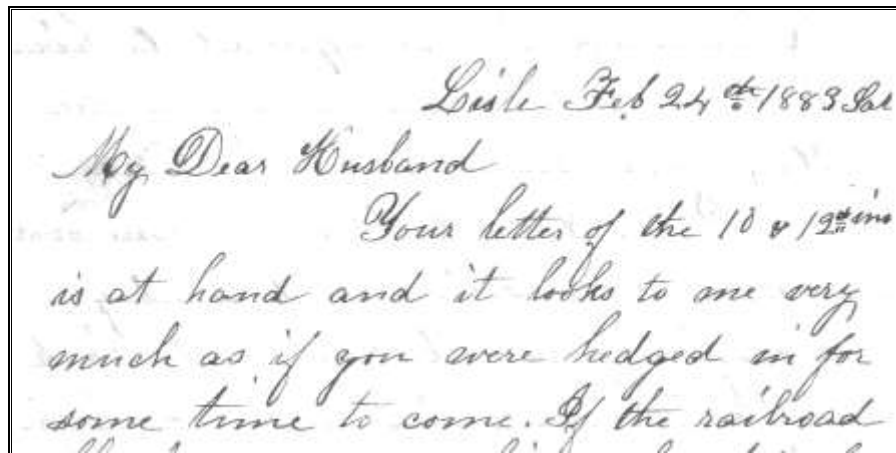 Lisle Feb 24th 1883 Sat
My Dear Husband
Your letter of the 10 & 12th ins
is at hand and it looks to me very
much as if you were hedged in for
some time to come. If the railroad